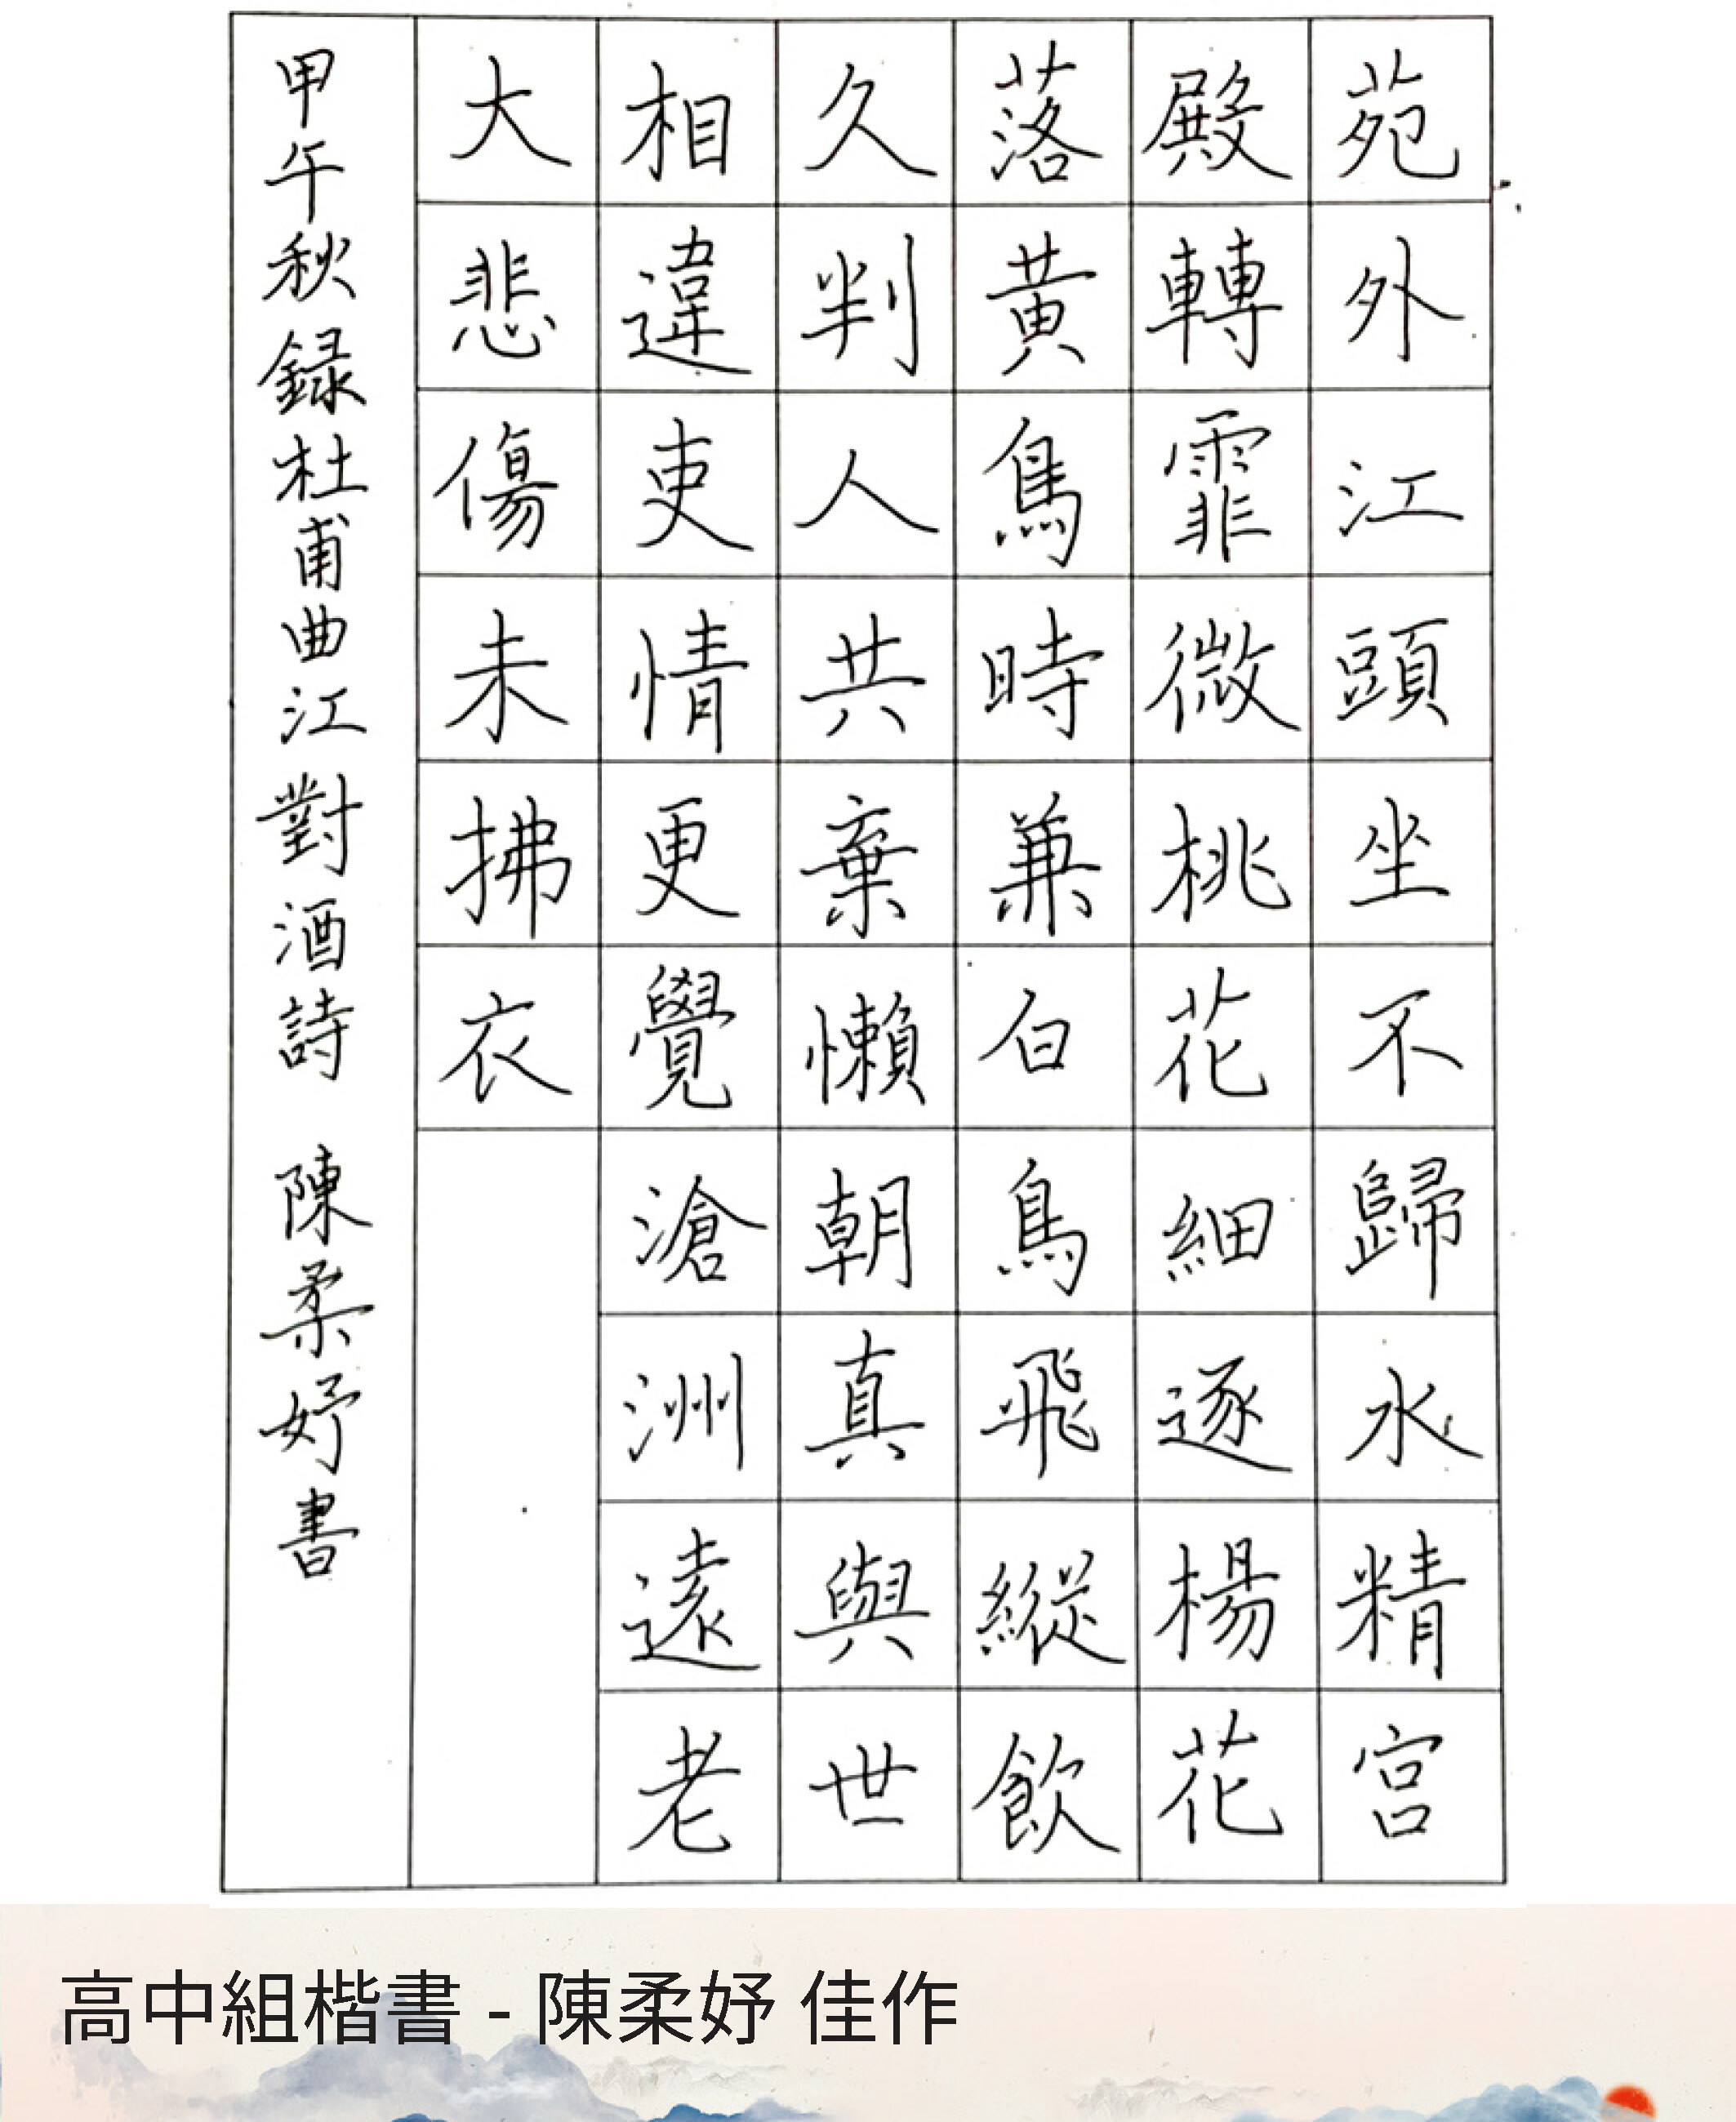 苑外江頭坐不歸水精宮
殿轉霏微桃花細逐楊花
落黃鳥時兼白鳥飛縱飲
久判人共棄懶朝真與世
相違吏情更覺滄洲遠老
大悲傷未拂衣
甲午秋録杜甫曲江對酒詩 陳柔妤書
高中組楷書 - 陳柔妤 佳作